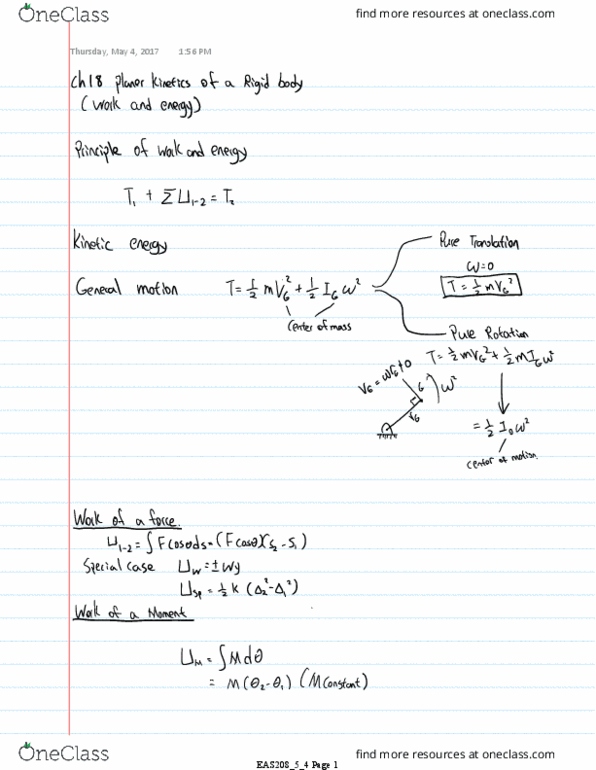 OneClass
find more resources at oneclass.com
Thursday, May 4, 2017 1:56 PM
Ch18 planer kinetics of a Rigid body
(work and energy)
Principle of work and energy
T₁ + ΣU₁₋₂ = T₂
Kinetic energy
Pure Translation
ω=0
General motion T=½mV_G²+½I_Gω² T=½mV_G²
Center of mass
Pure Rotation
T=½mV_G²+½mI_Gω²
V_G = ωr_G+0
G
ω²
r_G
=½I₀ω²
center of motion
Work of a force
U₁₋₂=∫Fcosθds=(Fcosθ)(s₂-s₁)
Special case U_w=±Wy
U_sp=½k(Δ₂²-Δ₁²)
Work of a Moment
U_M=∫Mdθ
=M(θ₂-θ₁) (M constant)
OneClass
find more resources at oneclass.com
EAS208_5_4 Page 1